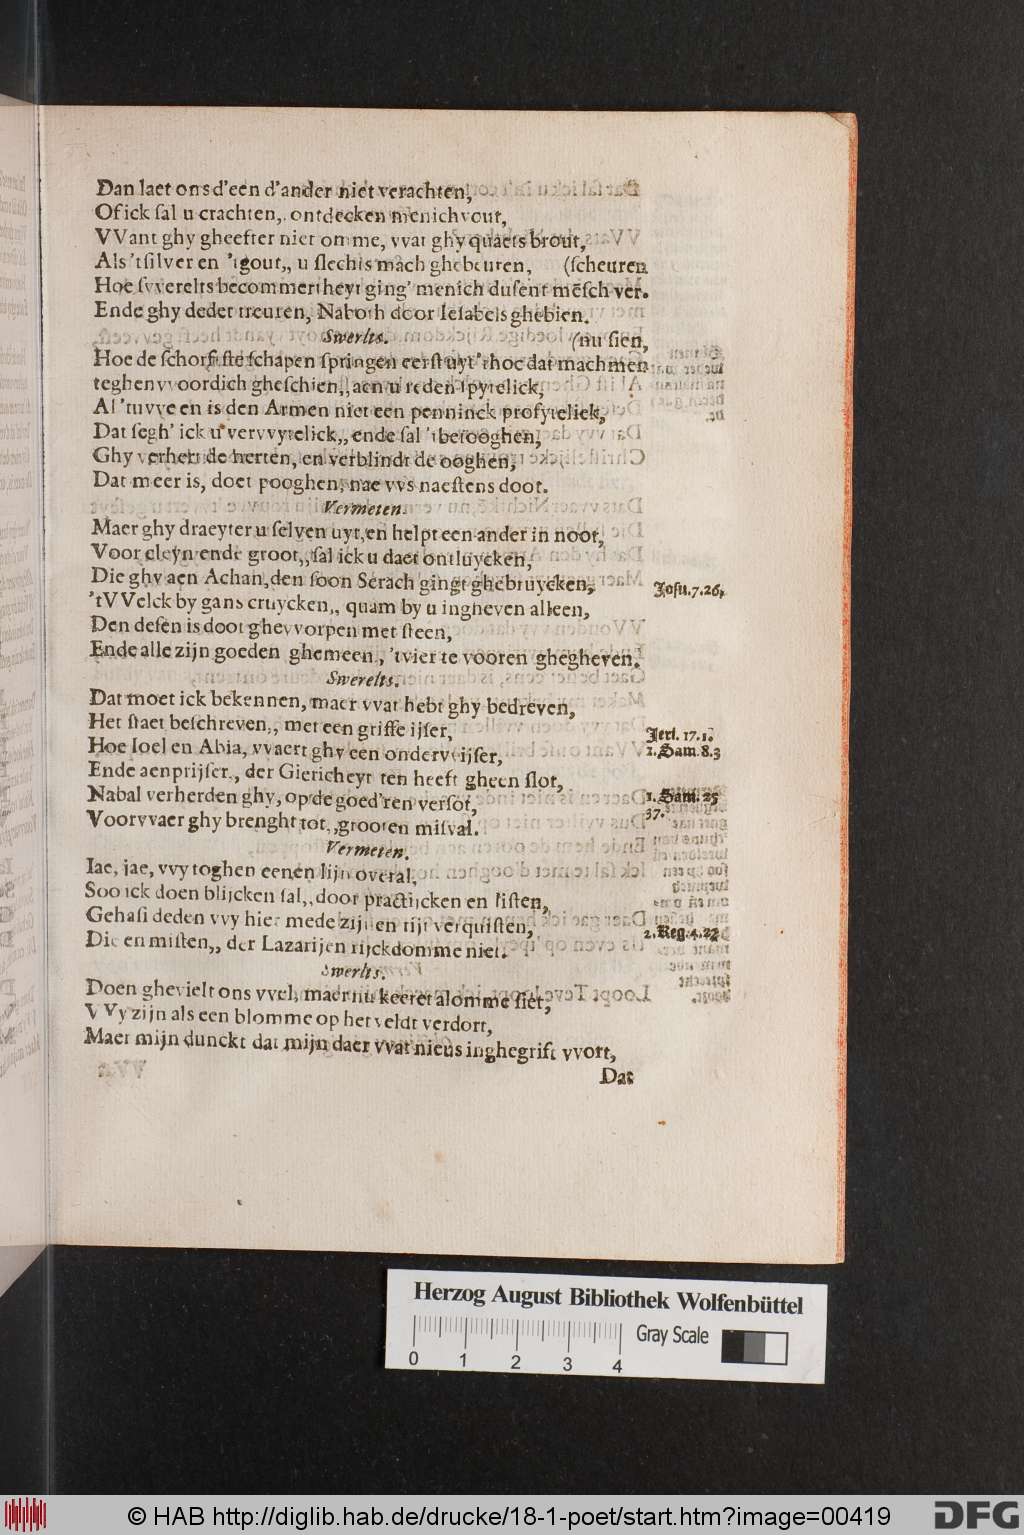 Dan laet ons d'een d'ander niet verachten,
Of ick sal u crachten,, ontdecken menich vout,
VVant ghy gheefter niet omme, vvat ghy quaets brout,
Als 'tsilver en 'tgout,, u slechts mach ghebeuren, (scheuren
Hoe svverelts becommertheyt ging' menich dusent mēsch ver.
Ende ghy dedet treuren, Naboth door Iesabels ghebien.
Swerlts. (nu sien,
Hoe de schorfste schapen springen eerst uyt 'thoc dat machmen
teghenvvoordich gheschien,, aen u reden spytelick,
Al 'tuvve en is den Armen niet een penninck profytelick,
Dat segh' ick u vervvytelick,, ende sal 'tbetooghen,
Ghy verhert de herten, en verblindt de ooghen,
Dat meer is, doet pooghen, nae vvs naestens doot.
Vermeten.
Maer ghy draeyter u selven uyt, en helpt een ander in noot,
Voor cleyn ende groot,, sal ick u daet ontluycken,
Die ghy aen Achan, den soon Serach gingt ghebruycken,
Josu.7.26.
'tVVelck by gans cruycken,, quam by u ingheven alleen,
Den desen is doot ghevvorpen met steen,
Ende alle zijn goeden ghemeen,, 'tvier te vooren ghegheven.
Swerelts.
Dat moet ick bekennen, maer vvat hebt ghy bedreven,
Het staet beschreven,, met een griffe ijser,
Jerl. 17.1.
Hoe Ioel en Abia, vvaert ghy een ondervvijser,
1. Sam. 8.3
Ende aenprijser,, der Giericheyt ten heeft gheen slot,
Nabal verherden ghy, op de goed'ren versot,
1. Sam. 25
37.
Voorvvaer ghy brenght tot,, grooten misval.
Vermeten.
Iae, jae, vvy toghen eenen lijn overal,
Soo ick doen blijcken sal,, door practijcken en listen,
Gehasi deden vvy hier mede zijnen tijt verquisten,
2. Reg. 4.27
Die en misten,, der Lazarijen rijckdomme niet.
Swerlts.
Doen ghevielt ons vvel, maer nu keeret alomme siet,
VVy zijn als een blomme op het veldt verdort,
Maer mijn dunckt dat mijn daer vvat nieus inghegrift vvort,
Dat
Herzog August Bibliothek Wolfenbüttel
Gray Scale
0 1 2 3 4
© HAB http://diglib.hab.de/drucke/18-1-poet/start.htm?image=00419
DFG